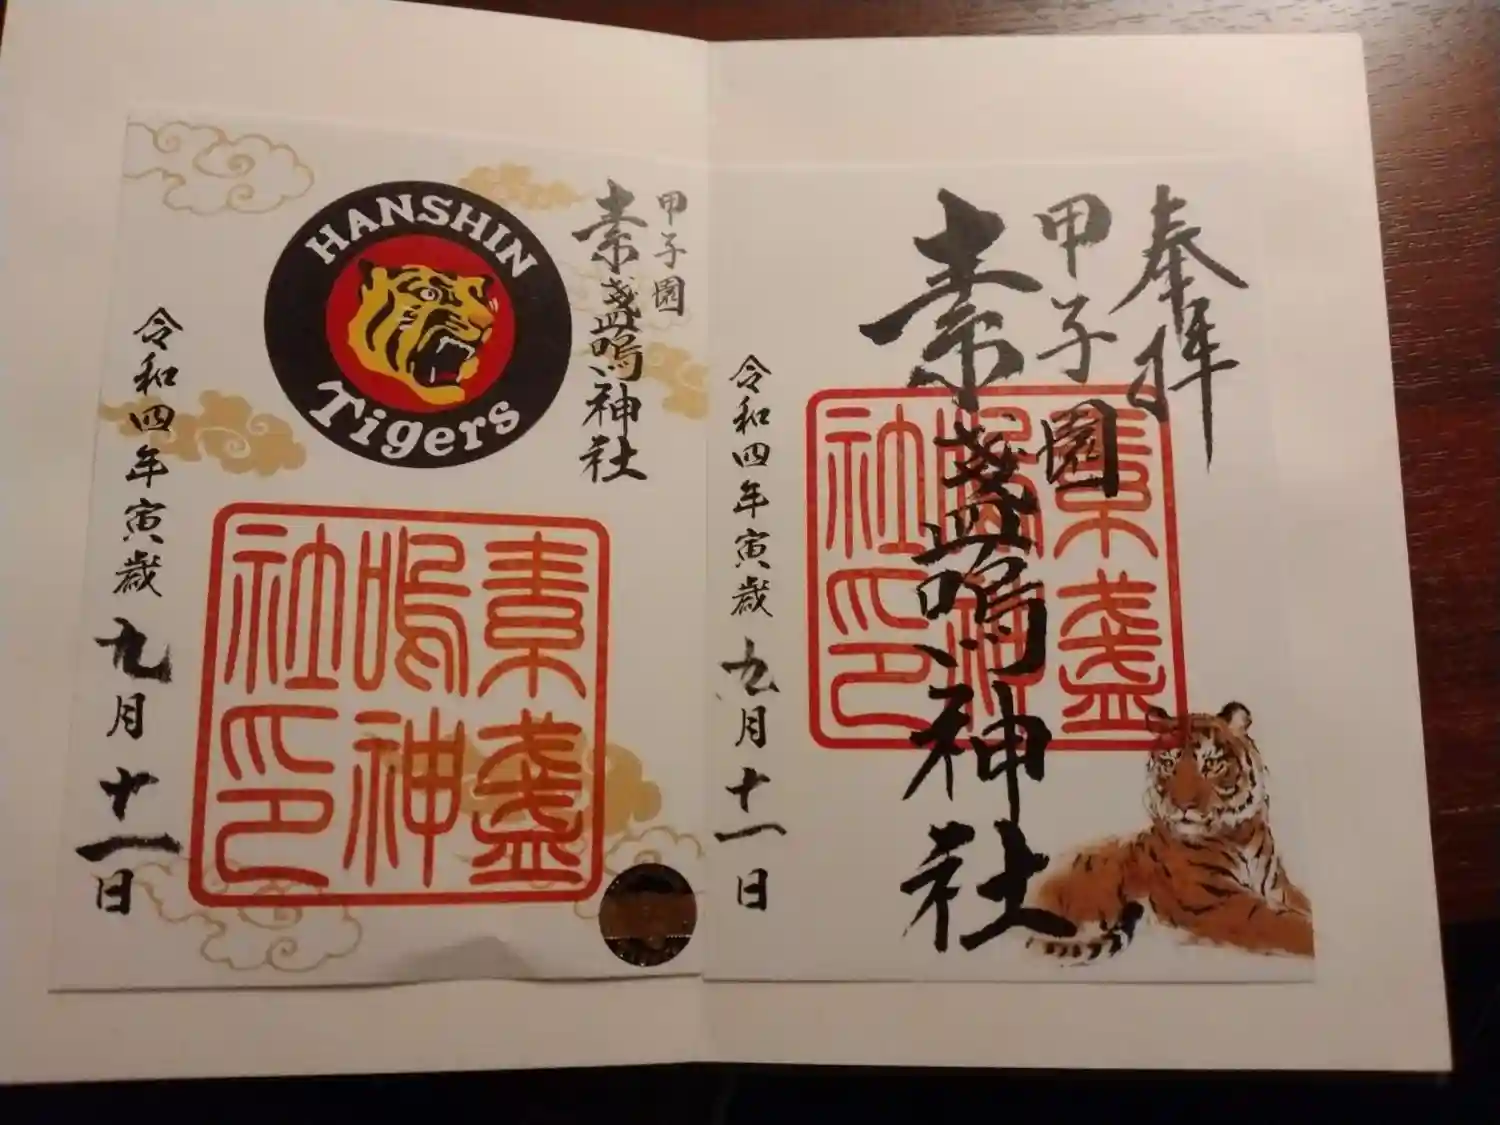 奉拝
甲子園
素盞嗚神社
素盞
嗚神
社印
令和四年寅歳九月十一日
甲子園
素盞嗚神社
HANSHIN
Tigers
素盞
嗚神
社印
令和四年寅歳九月十一日